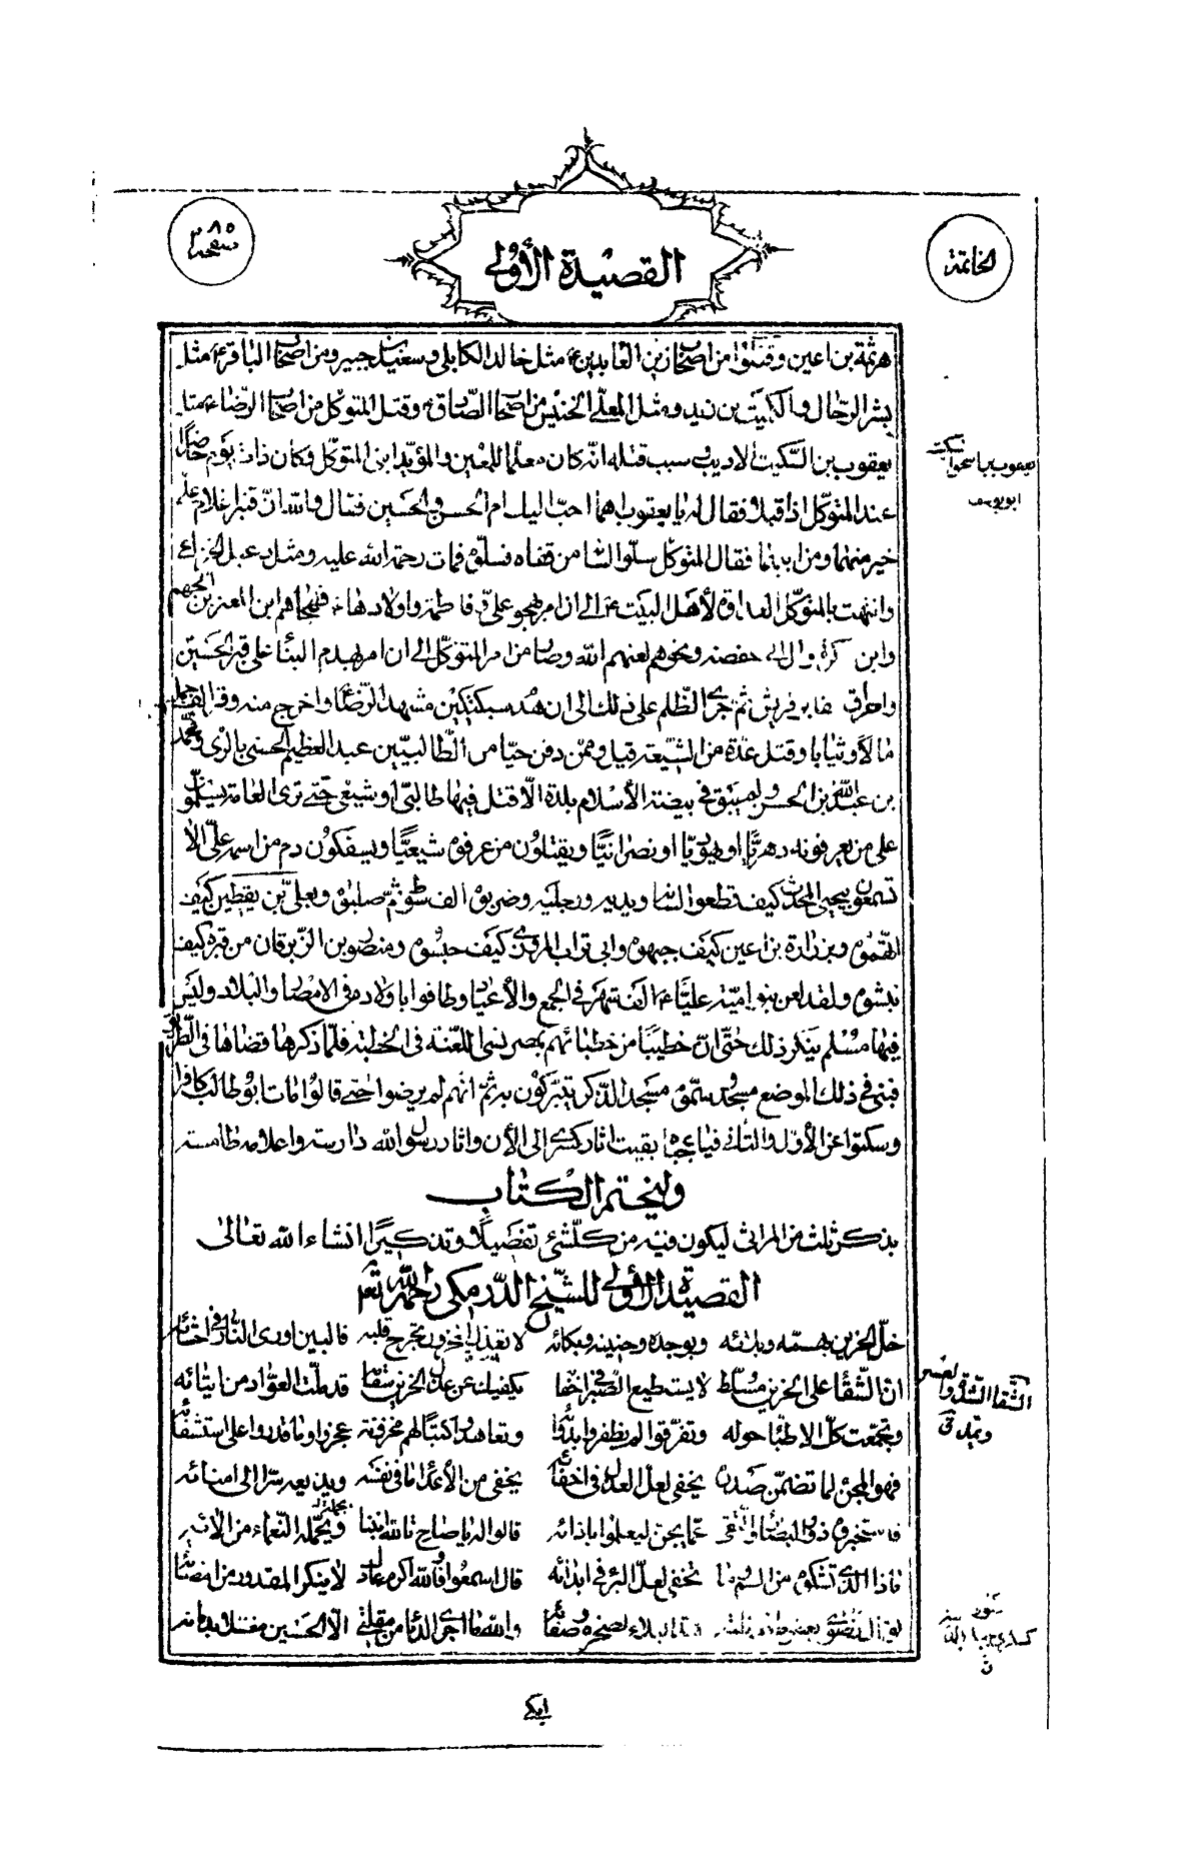 الخاتمة
القصيدة الأولى
صفحه ٣٨٥
هرثمة بن اعين وقتلوا من اصحاب زين العابدين ع مثل خالد الكابلي وسعيد بن جبير ومن اصحاب الباقر ع مثل
بشر الرحال والكميت بن زيد ومثل المعلى الخنيس من اصحاب الصادق ع وقتل المتوكل من اصحاب الرضا ع مثل
يعقوب بن السكيت الاديب وسبب قتله انه كان معلما للمعين والمؤيد ابنى المتوكل وكان ذات يوم حاضرا
عند المتوكل اذ اقبلا فقال له يا يعقوب اهما احب اليك ام الحسن والحسين فقال والله ان قنبر اغلام على
خير منهما ومن ابيهما فقال المتوكل سلوا لسانه من قفاه فسلوه فمات رحمة الله عليه ومثل دعبل الخزاعي
وانتهت بالمتوكل العداوة لأهل البيت ع الى ان امر بهجو على وفاطمة واولادها ع فهجاهم ابن المعتز وابن الجهم
وابن سكرة وال ابى حفصه ونحوهم لعنهم الله وصار من امر المتوكل الى ان امر بهدم البناء على قبر الحسين
واحراق مقابر قريش ثم جرى الظلم على ذلك الى ان هدم سبكتكين مشهد الرضا ع واخرج منه وقر الف جمل
مالا وثيابا وقتل عدة من الشيعة قيل وممن دفن حيا من الطالبيين عبد العظيم الحسنى بالرى ومحمد
بن عبد الله بن الحسن ولم يبق فى بيضة الأسلام بلدة الا قتل فيها طالبى او شيعى حتى ترى العامة يسلمون
على من يعرفونه دهريا او يهوديا او نصرانيا ويقتلون من عرفوه شيعيا ويسفكون دم من اسمه على الا
تسمعون بيحيى المحدث كيف قطعوا لسانه ويديه ورجليه وضربوه الف سوط ثم صلبوه وبعلى بن يقطين كيف
اتهموه وبزرارة بن اعين كيف جبهوه وابى تراب المروزى كيف حبسوه ومنصور بن الزبرقان من قبره كيف
نبشوه ولقد لعن بنو امية عليا ع الف شهر فى الجمع والأعياد وطافوا باولاده فى الامصار والبلاد وليس
فيها مسلم ينكر ذلك حتى ان خطيبا من خطبائهم بمصر نسى اللعنة فى الخطبة فلما ذكرها قضاها فى الطريق
فبنى فى ذلك الموضع مسجد وسموه مسجد الذكر يتبركون به ثم انهم لم يرضوا حتى قالوا مات ابو طالب كافرا
وسكتوا عن الأول والثانى فيا عجباه بقيت اثار كسرى الى الأن واثار رسول الله دارسة واعلامه طامسة
ولنختم الكتاب
بذكر ثلث من المراثى ليكون فيه من كل شئ تفصيلا وتذكيرا انشاء الله تعالى
القصيدة الأولى للشيخ الدرمكى رحمه الله تعالى
خل الحزين بهمه وبلائه وبوجده وحنينه وبكائه لا تعذل المحزون تجرح قلبه فالبين اورى النار فى احشائه
ان الشقا على الحزين مسلط لا يستطيع الصبر فى اخفائه يكفيك عن عذل الحزين شقاؤه قد ملت العواد من ايتائه
وتجمعت كل الاطباء حوله وتفرقوا لم يظفروا بدوائه وتعاهدوا كتبا لهم مخزونة عجزوا وما قدروا على استشفائه
فهو المجن لما تضمن صدره يخفى لعل العدل فى اخفائه يخفى من الأعداء ما فى نفسه ويذيعه سرا الى امنائه
فاستخبروه ذوو البصائر والتقى عما يجن ليعلموا باذائه قالوا له يا صاح نالله انبنا
ماذا الذى تشكوه من السقم تخفى لعل البرء فى ابدائه قال اسمعوا فالله اكرم عادل لا ينكر المقدور من امضائه
والله ما اجرى الدما من مقلتى الا الحسين مقتلا بدمائه
يعقوب بن اسحق
سكيت
ابو يوسف
الشقا الشدة والعسر
ويمد ق
ابكى